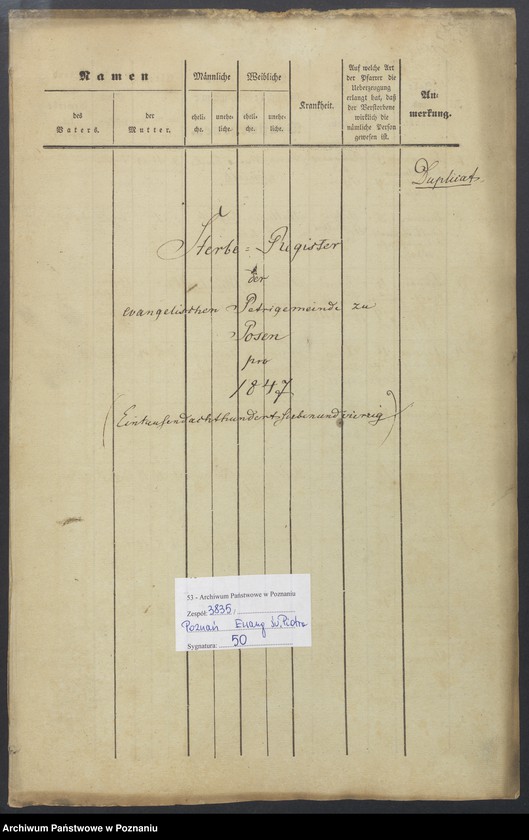 Namen
des Vaters.
der Mutter.
Männliche
eheli-
che.
unehe-
liche.
Weibliche
eheli-
che.
unehe-
liche.
Krankheit.
Auf welche Art
der Pfarrer die
Ueberzeugung
erlangt hat, daß
der Verstorbene
wirklich die
nämliche Person
gewesen ist.
An-
merkung.
Duplicat.
Sterbe=Register
der
evangelischen Petrigemeinde zu
Posen
pro
1847
(Eintausendachthundert siebenundvierzig)
53 - Archiwum Państwowe w Poznaniu
Zespół: 3835,
Poznań Ewang Św. Piotra
Sygnatura: 50
Archiwum Państwowe w Poznaniu